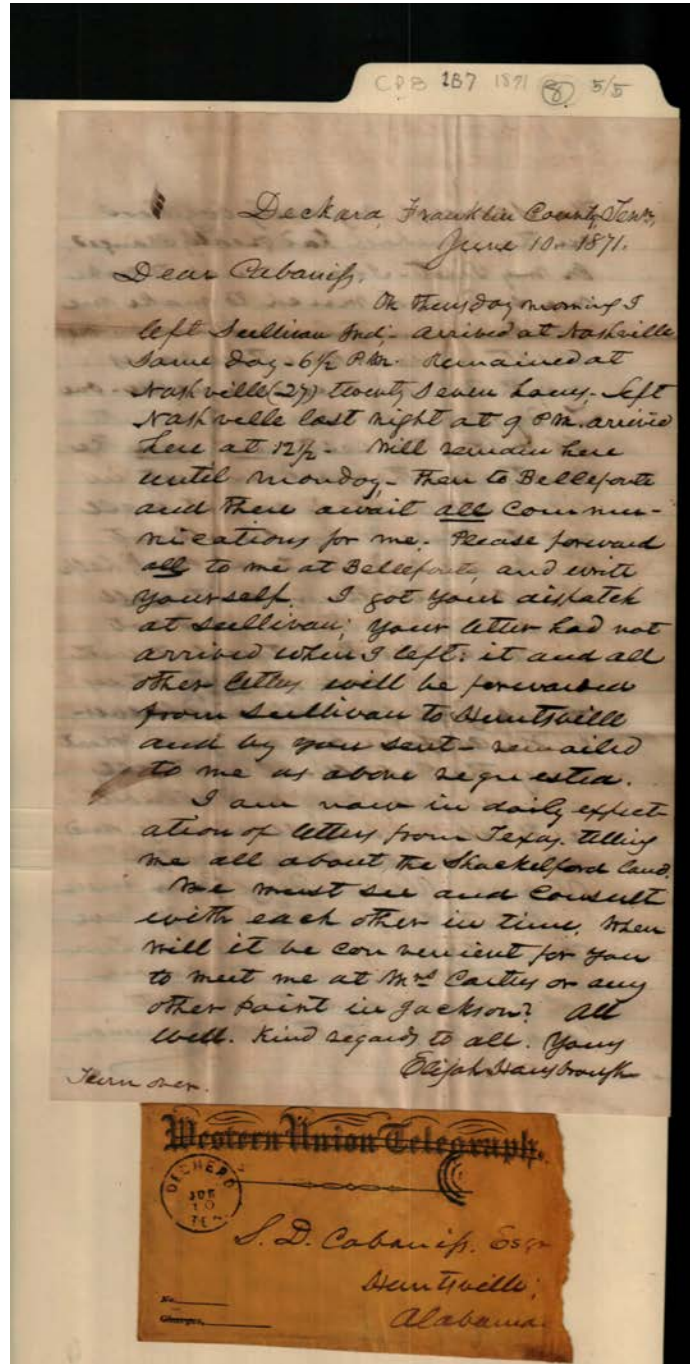 CPB 187 1871 8 5/5
Deckard, Franklin County, Tenn,
June 10. 1871.
Dear Cabaniss.
On thursday morning I
left Sullivan Ind;- arrived at Nashville
Same day - 6½ P.M. Remained at
Nashville (27) twenty Seven hours. left
Nashville last night at 9 P.M. arrived
here at 12½- Will remain here
until monday, then to Bellefonte
and there await all Commu-
nications for me. Please forward
all to me at Bellefonte, and write
yourself. I got your dispatch
at Sullivan; your letter had not
arrived when I left: it and all
other letters will be forwarded
from Sullivan to Huntsville
and by you sent - remailed
to me as above requested.
I am now in daily expect-
ation of letters from Texas. telling
me all about the Shackelford land.
We must see and consult
with each other in time. When
will it be convenient for you
to meet me at Mrs Carters or any
other point in Jackson? All
well. Kind regards to all. Yours
Elijah Hansbrough
Turn over.
Western Union Telegraph.
DECHERD
JUN
10
TEN
S. D. Cabaniss. Esqr
Huntsville;
Alabama
No.
Charges,